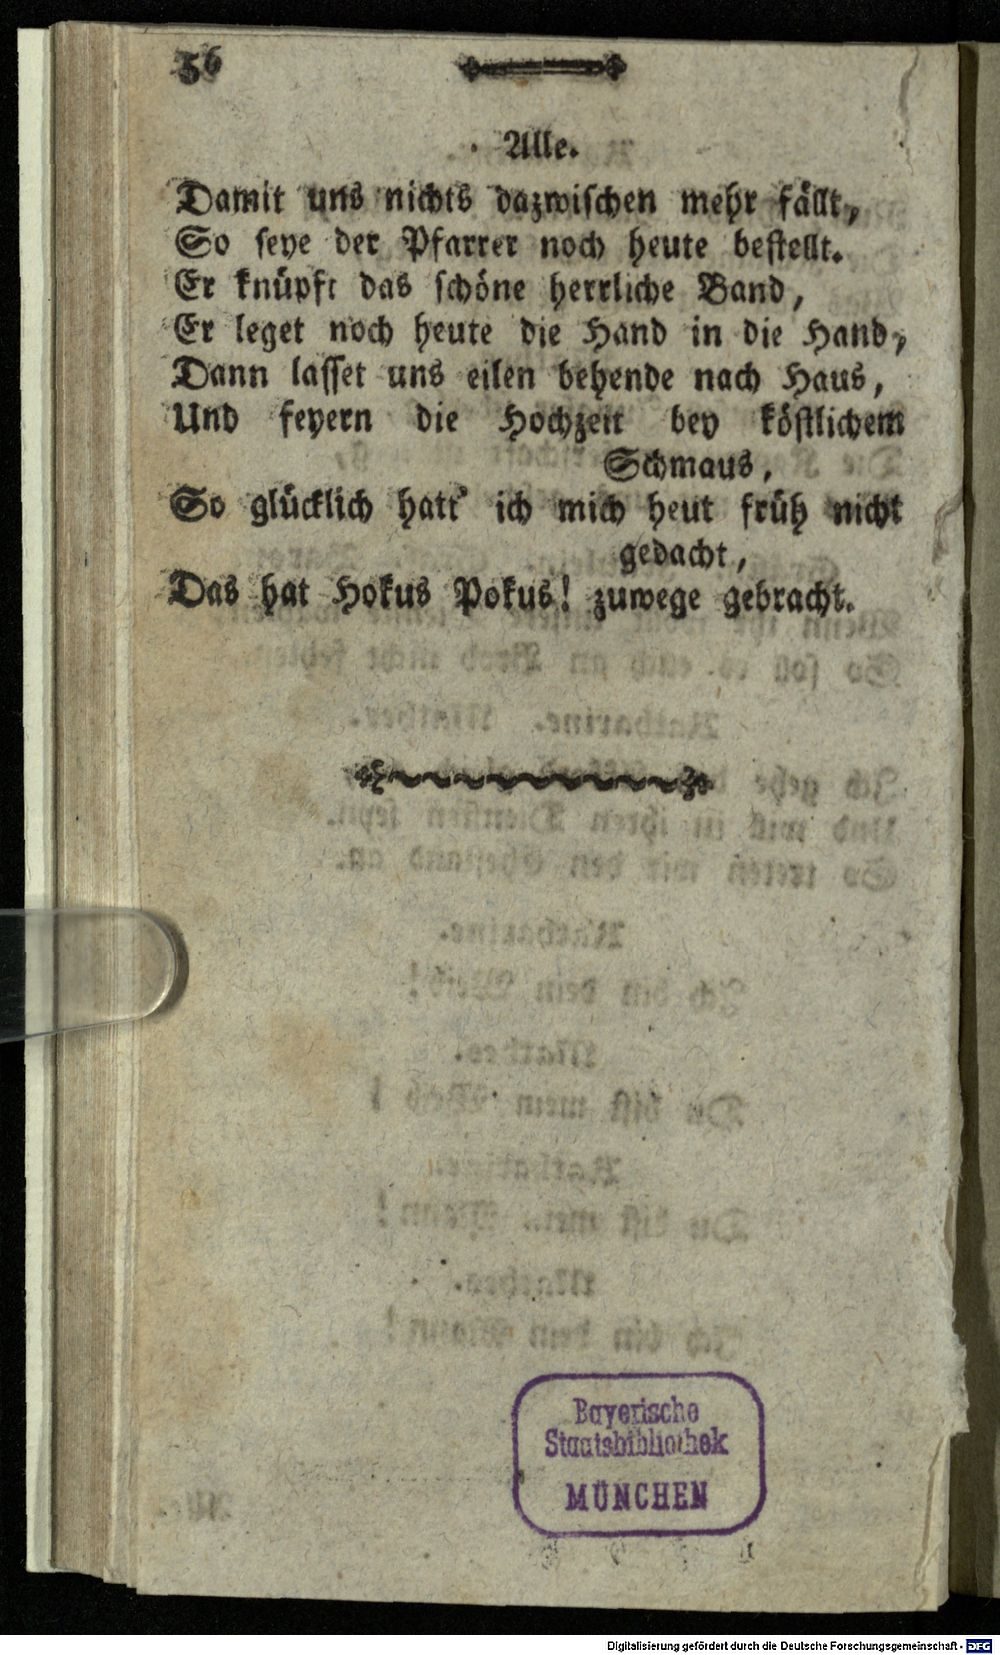 56
Alle.
Damit uns nichts dazwischen mehr fällt,
So seye der Pfarrer noch heute bestellt.
Er knüpft das schöne herrliche Band,
Er leget noch heute die Hand in die Hand,
Dann lasset uns eilen behende nach Haus,
Und feyern die Hochzeit bey köstlichem
Schmaus,
So glücklich hatt' ich mich heut früh nicht
gedacht,
Das hat Hokus Pokus! zuwege gebracht.
Bayerische
Staatsbibliothek
MÜNCHEN
Digitalisierung gefördert durch die Deutsche Forschungsgemeinschaft - DFG